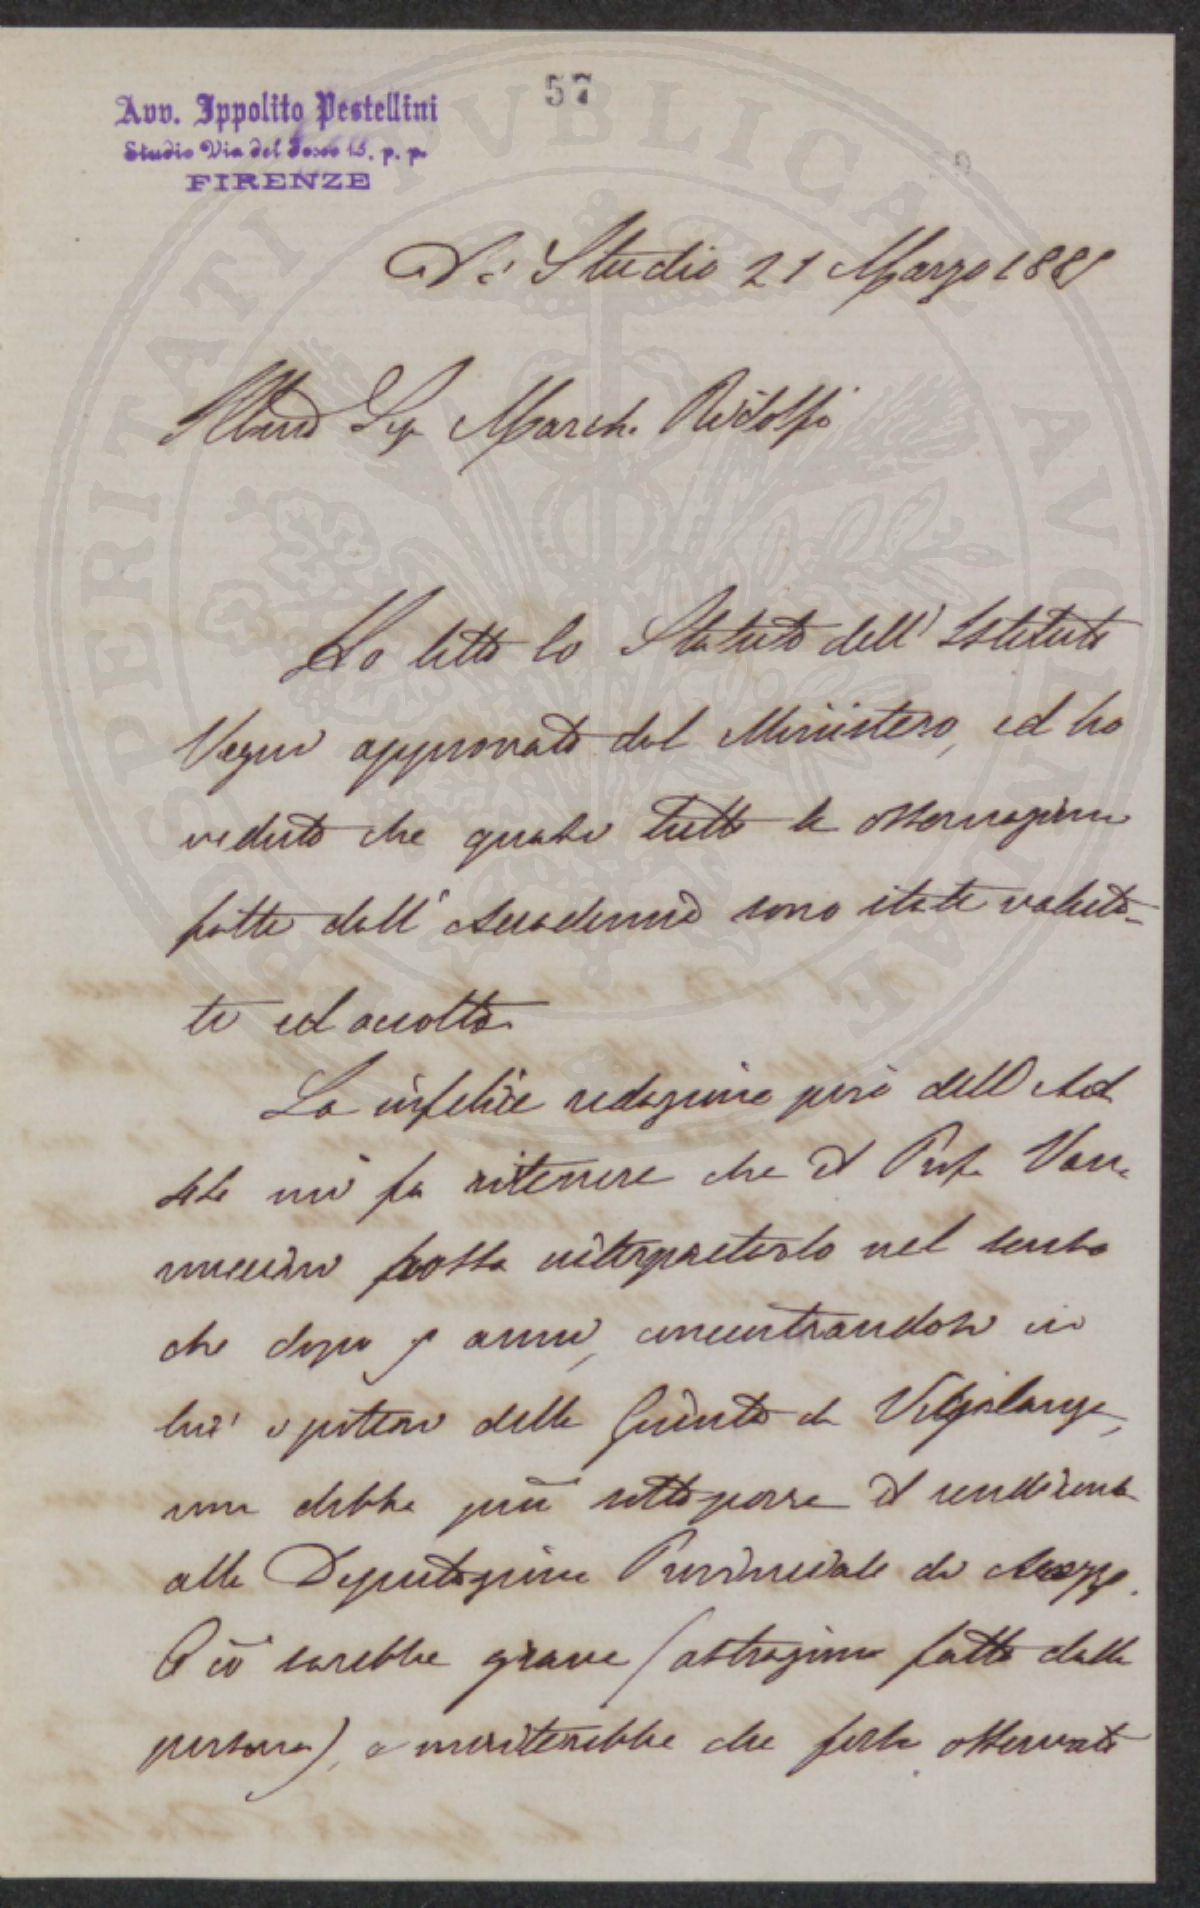 57
Avv. Ippolito Pestellini
Studio Via del 15. p. p.
FIRENZE
Di Studio 21 Marzo 188
Sig March. Ridolfi
Ho letto lo Statuto dell' Istituto
Vegni approvato dal Ministero, ed ho
veduto che quasi tutte le osservazioni
fatte dall' Accademia sono state valuta-
te ed accolte.
La infelice redazione però dell' Art
mi fa ritenere che il Prof. Van-
nuccini possa interpretarlo nel senso
che dopo anni, concentrandosi in
lui i poteri della Giunta di Vigilanza,
non debba più sottoporre il rendiconto
alla Deputazione Provinciale di Arezzo.
Ciò sarebbe grave (astrazione fatta dalla
persona), e meriterebbe che fosse osservato
POSPERITATI PVBLICAE AVGENDAE